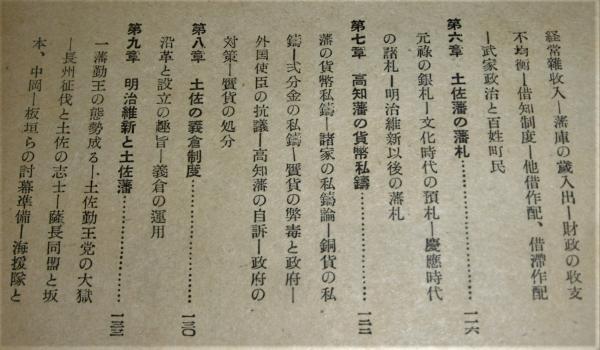 経常雑収入―藩庫の蔵入出―財政の収支
不均衡―借知制度―他借作配、借滞作配
―武家政治と百姓町民
第六章 土佐藩の藩札…………一一六
元祿の銀札―文化時代の預札―慶應時代
の諸札―明治維新以後の藩札
第七章 高知藩の貨幣私鑄…………一二二
藩の貨幣私鑄―諸家の私鑄論―銅貨の私
鑄―弐分金の私鑄―贋貨の弊毒と政府―
外国使臣の抗議―高知藩の自訴―政府の
対策―贋貨の処分
第八章 土佐の義倉制度…………一三〇
沿革と設立の趣旨―義倉の運用
第九章 明治維新と土佐藩…………一三三
一藩勤王の態勢成る―土佐勤王党の大獄
―長州征伐と土佐の志士―薩長同盟と坂
本、中岡―板垣らの討幕準備―海援隊と